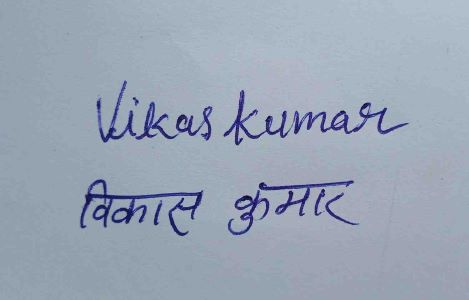 Vikas kumar
विकास कुमार